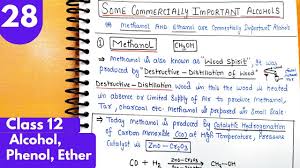 28
Class 12
Alcohol,
Phenol, Ether
SOME COMMERCIALLY IMPORTANT ALCOHOLS
Methanol AND Ethanol are Commercially Important Alcohols
① Methanol CH₃OH
Methanol is also known as "Wood Spirit". It was
produced by "Destructive-Distillation of Wood"
Destructive-Distillation → In this the wood is heated
in absence or Limited Supply of Air to produce Methanol
Tar, charcoal etc. Methanol is prepared in Small Scale
Today Methanol is produced by Catalytic Hydrogenation
of Carbon Monoxide (CO) at High Temperature, Pressure
Catalyst is ZnO-Cr₂O₃
CO + H₂ ZnO-Cr₂O₃ CH₃OH